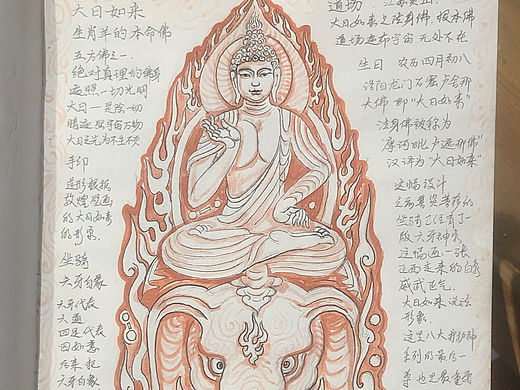 大日如来
生肖羊的本命佛
五方佛之一
绝对真理的佛身
遍照一切光明
大日—是除一切
暗遍照宇宙万物
大日之光为不生不灭
手印
造形根据
敦煌壁画
的大日如来
的形象.
坐骑
六牙白象
六牙代表
六道
四足代表
四如意
六牙白象
道场
大日如来之法身佛 根本佛
道场遍布宇宙 无处不在
生日 农历四月初八
洛阳龙门石窟卢舍那
大佛 即“大日如来”
法身佛被称为
“摩诃毗卢遮那佛”
汉译为“大日如来”
这幅设计
之前普贤菩萨的
坐骑已经有了一
版六牙神象
这幅画一张
正面走来的白象
威武正气.
大日如来说法
形象.
这是八大守护神
系列的最后一